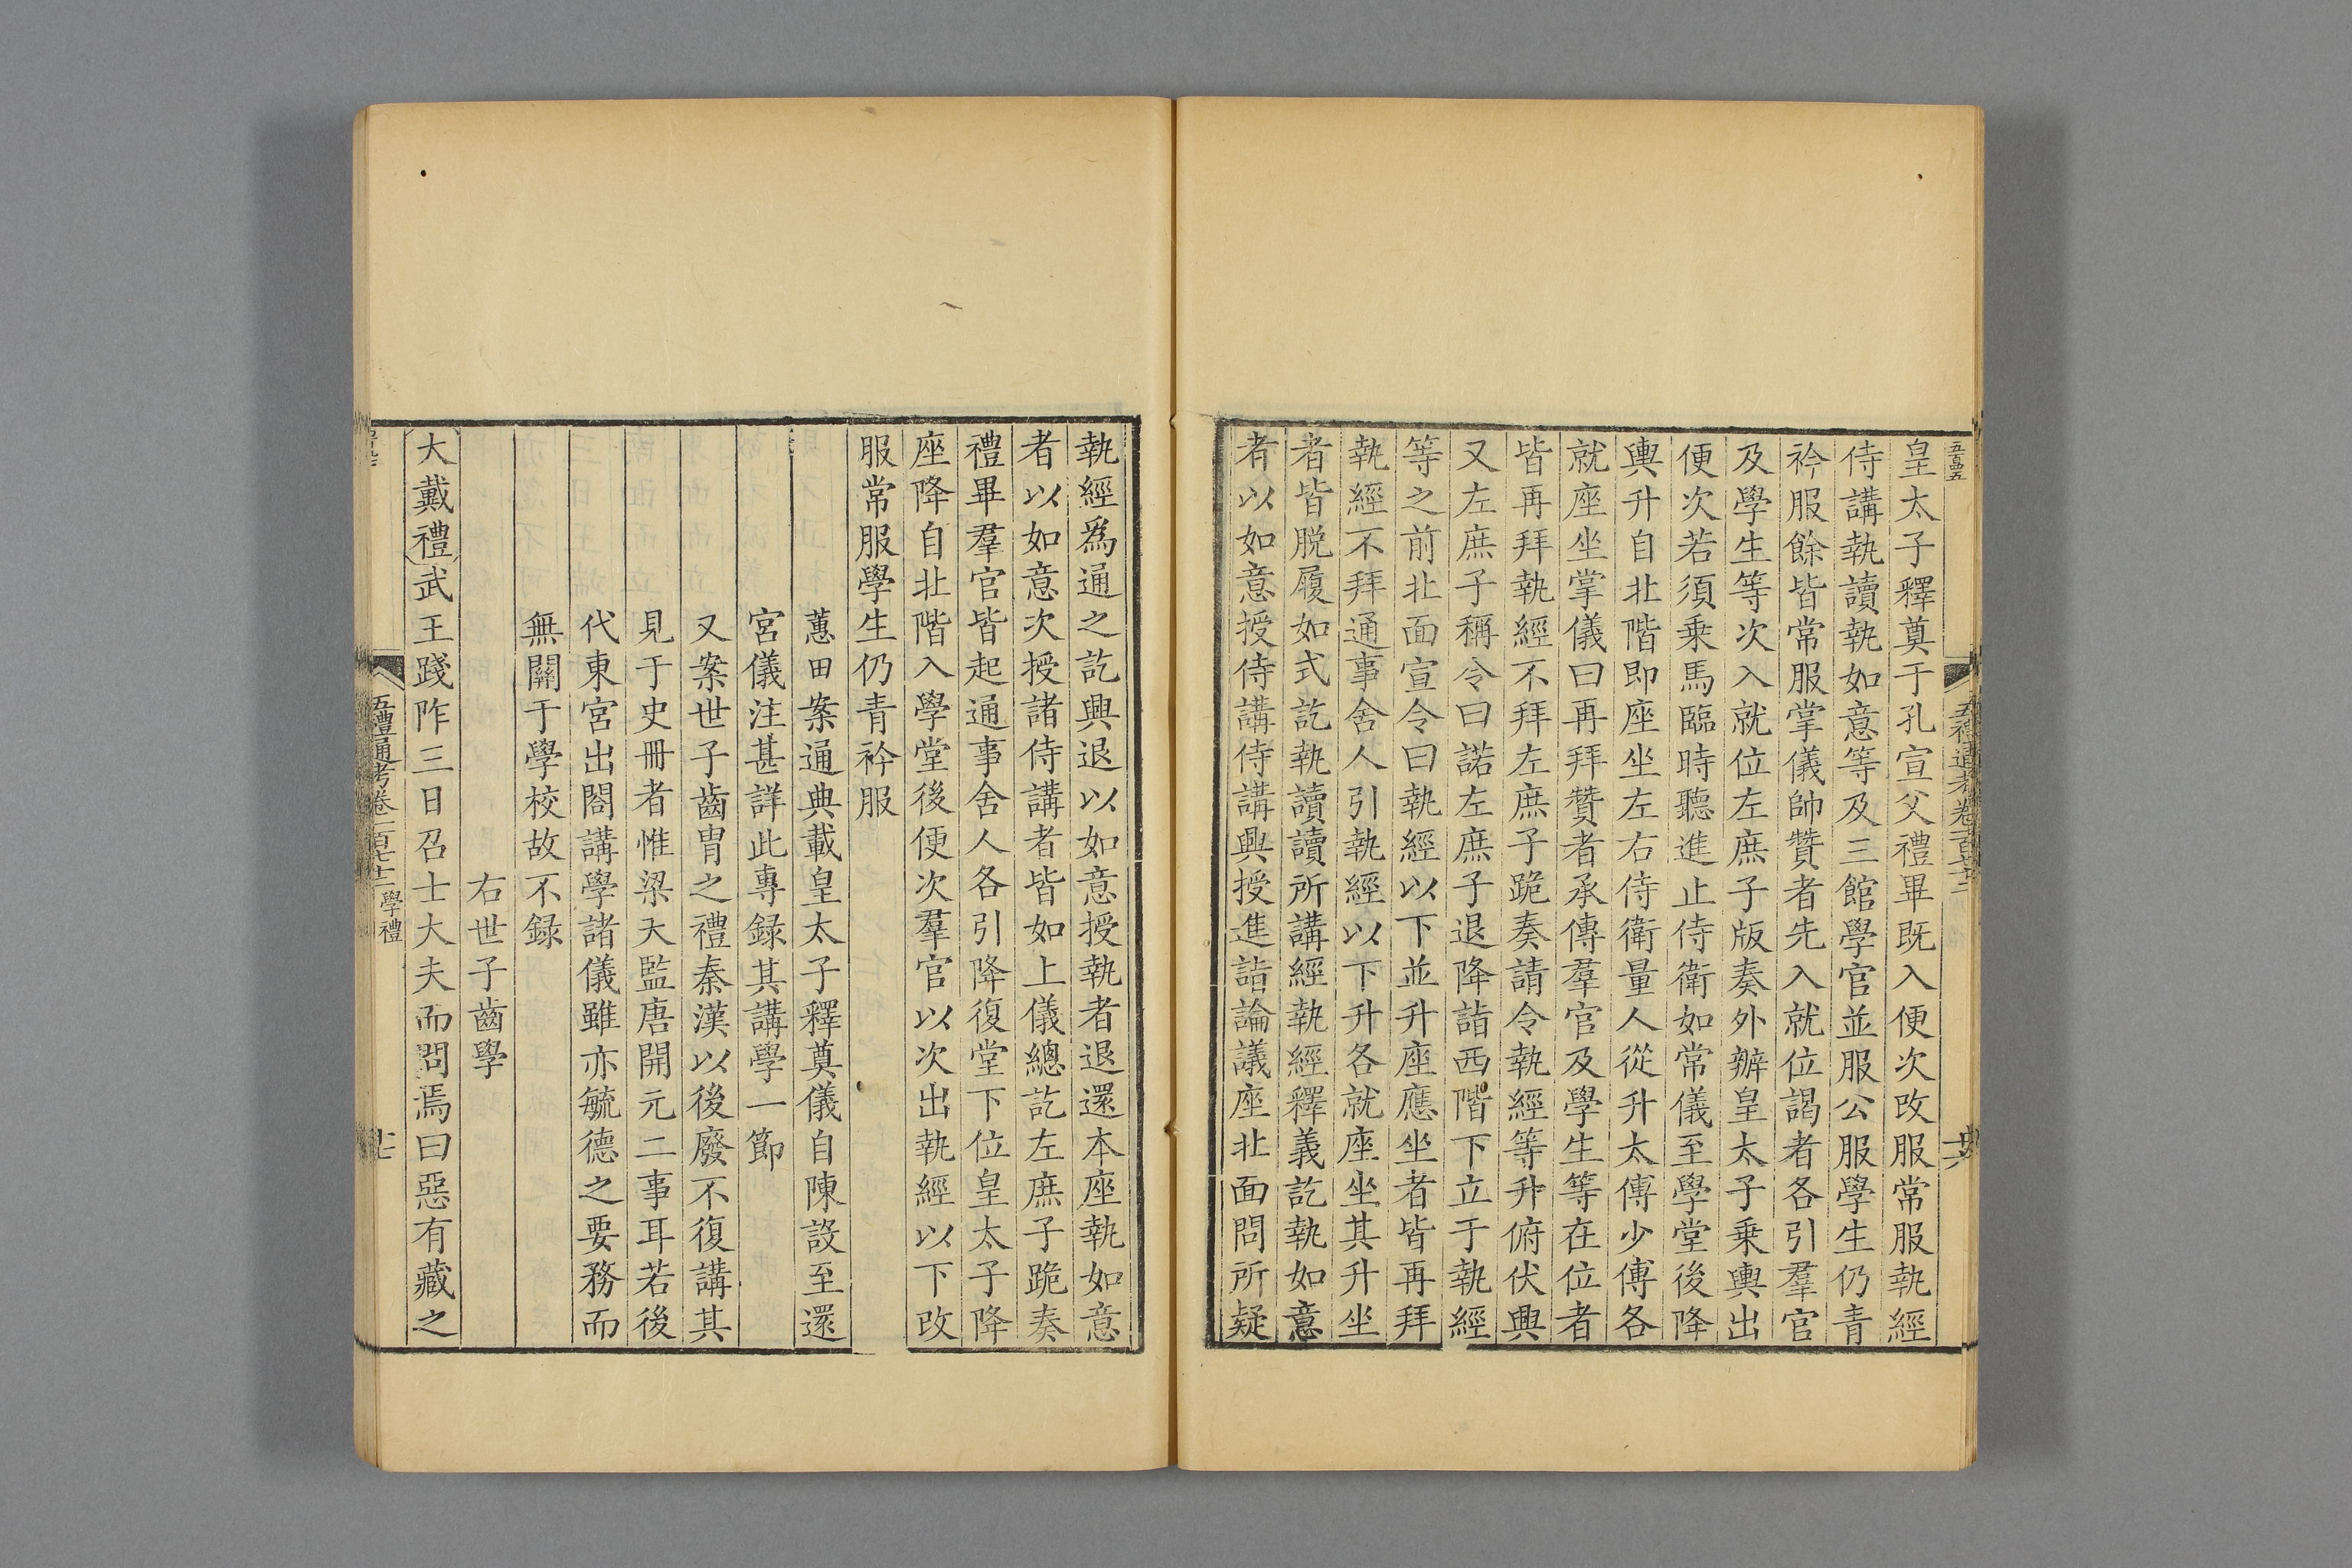 皇太子釋奠于孔宣父禮畢既入便次改服常服執經
侍講執讀執如意等及三館學官並服公服學生仍青
衿服餘皆常服掌儀帥贊者先入就位謁者各引羣官
及學生等次入就位左庶子版奏外辦皇太子乗輿出
便次若須乗馬臨時聽進止侍衛如常儀至學堂後降
輿升自北階即座坐左右侍衛量人從升太傅少傅各
就座坐掌儀曰再拜贊者承傳羣官及學生等在位者
皆再拜執經不拜左庶子跪奏請令執經等升俯伏興
又左庶子稱令曰諾左庶子退降詣西階下立于執經
等之前北面宣令曰執經以下並升座應坐者皆再拜
執經不拜通事舍人引執經以下升各就座坐其升坐
者皆脱履如式訖執讀讀所講經執經釋義訖執如意
者以如意授侍講侍講興授進詣論議座北面問所疑
執經爲通之訖興退以如意授執者退還本座執如意
者以如意次授諸侍講者皆如上儀總訖左庶子跪奏
禮畢羣官皆起通事舍人各引降復堂下位皇太子降
座降自北階入學堂後便次羣官以次出執經以下改
服常服學生仍青衿服
蕙田案通典載皇太子釋奠儀自陳設至還
宮儀注甚詳此專録其講學一節
又案世子齒胄之禮秦漢以後廢不復講其
見于史冊者惟梁天監唐開元二事耳若後
代東宮出閤講學諸儀雖亦毓德之要務而
無關于學校故不録
右世子齒學
大戴禮武王踐阼三日召士大夫而問焉曰惡有藏之
五禮通考卷一百七十二 學禮